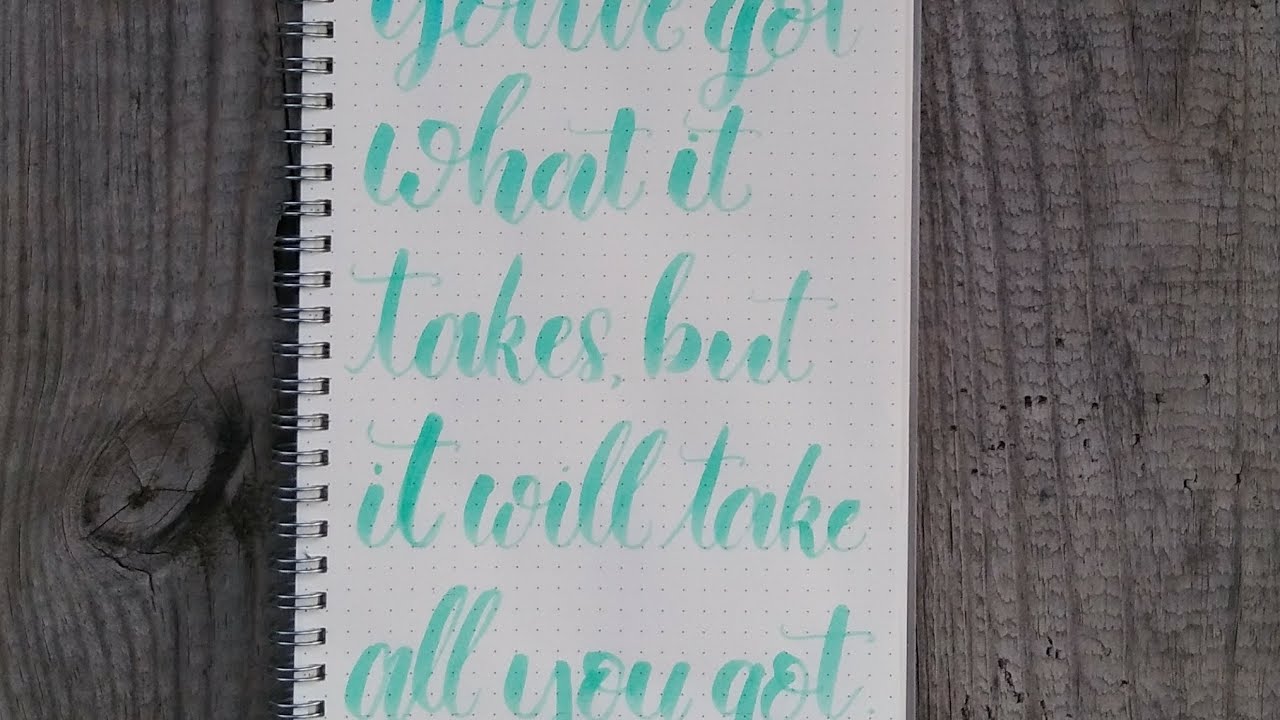 you've got
what it
takes, but
it will take
all you got.